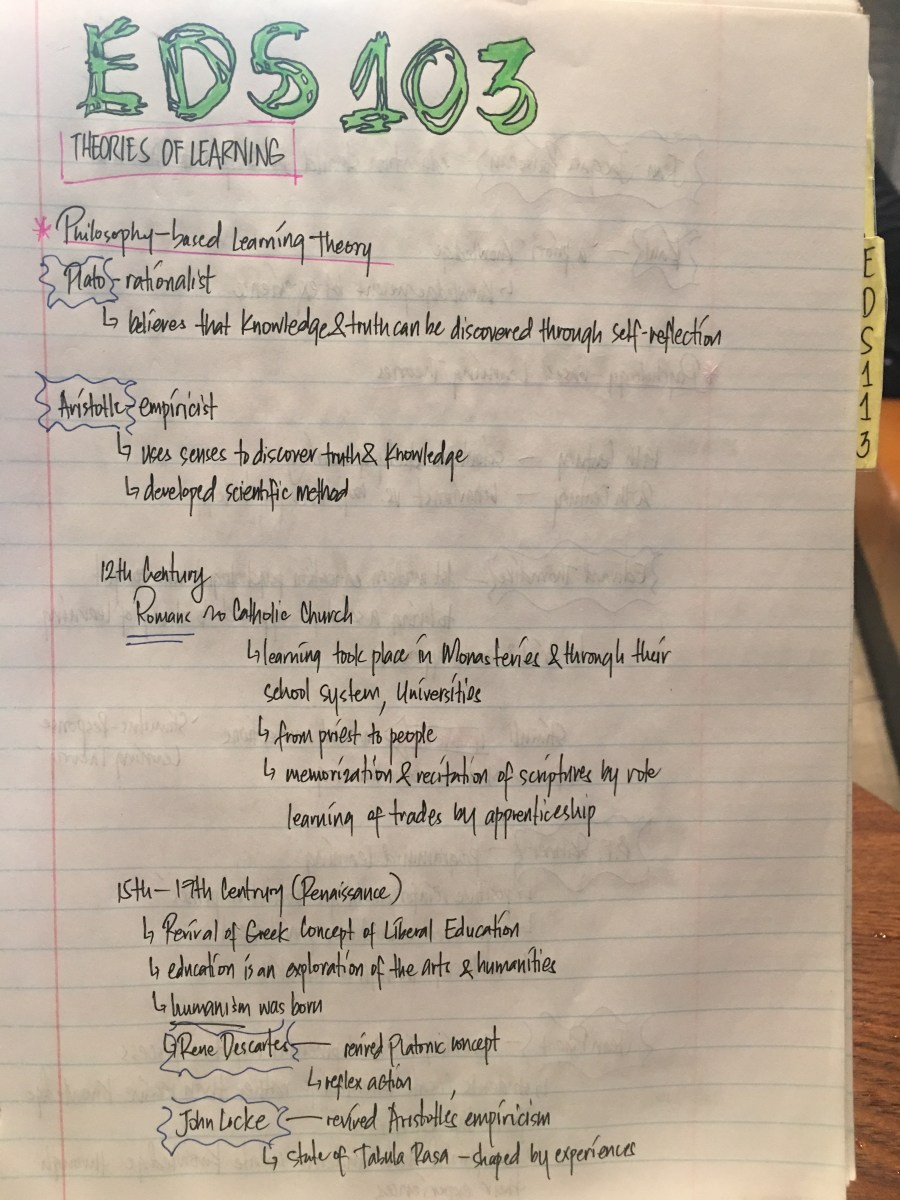 EDS 103
THEORIES OF LEARNING
* Philosophy-based Learning theory
Plato - rationalist
↳ believes that knowledge & truth can be discovered through self-reflection
Aristotle - empiricist
↳ uses senses to discover truth & knowledge
↳ developed scientific method
12th Century
Romans ~ Catholic Church
↳ learning took place in Monasteries & through their
school system, Universities
↳ from priest to people
↳ memorization & recitation of scriptures by rote
learning of trades by apprenticeship
15th - 17th Centrury (Renaissance)
↳ Revival of Greek Concept of Liberal Education
↳ education is an exploration of the arts & humanities
↳ humanism was born
↳ Rene Descartes — revived Platonic concept
↳ reflex action
John Locke — revived Aristotle's empiricism
↳ state of Tabula Rasa - shaped by experiences
EDS113